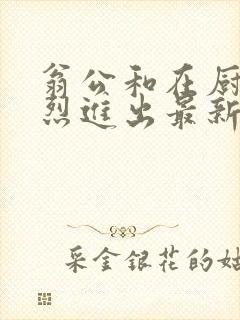 翁公和在厨
烈進出最新
采金銀花的姑